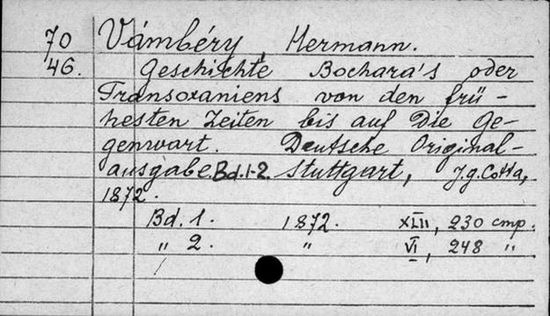 70 Vámbéry, Hermann.
46. Geschichte Bochara's oder
Transoxaniens von den frü-
hesten Zeiten bis auf die Ge-
genwart. Deutsche Original-
ausgabe Bd.1-2. Stuttgart, J.g.Cotta,
1872.
Bd. 1. 1872. XLII, 230 стр.
„ 2. „ VI, 248 „